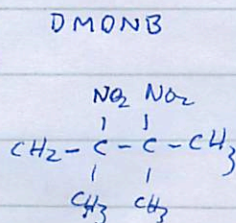 DMONB
NO2 NO2
CH2 - C - C - CH3
CH3 CH3